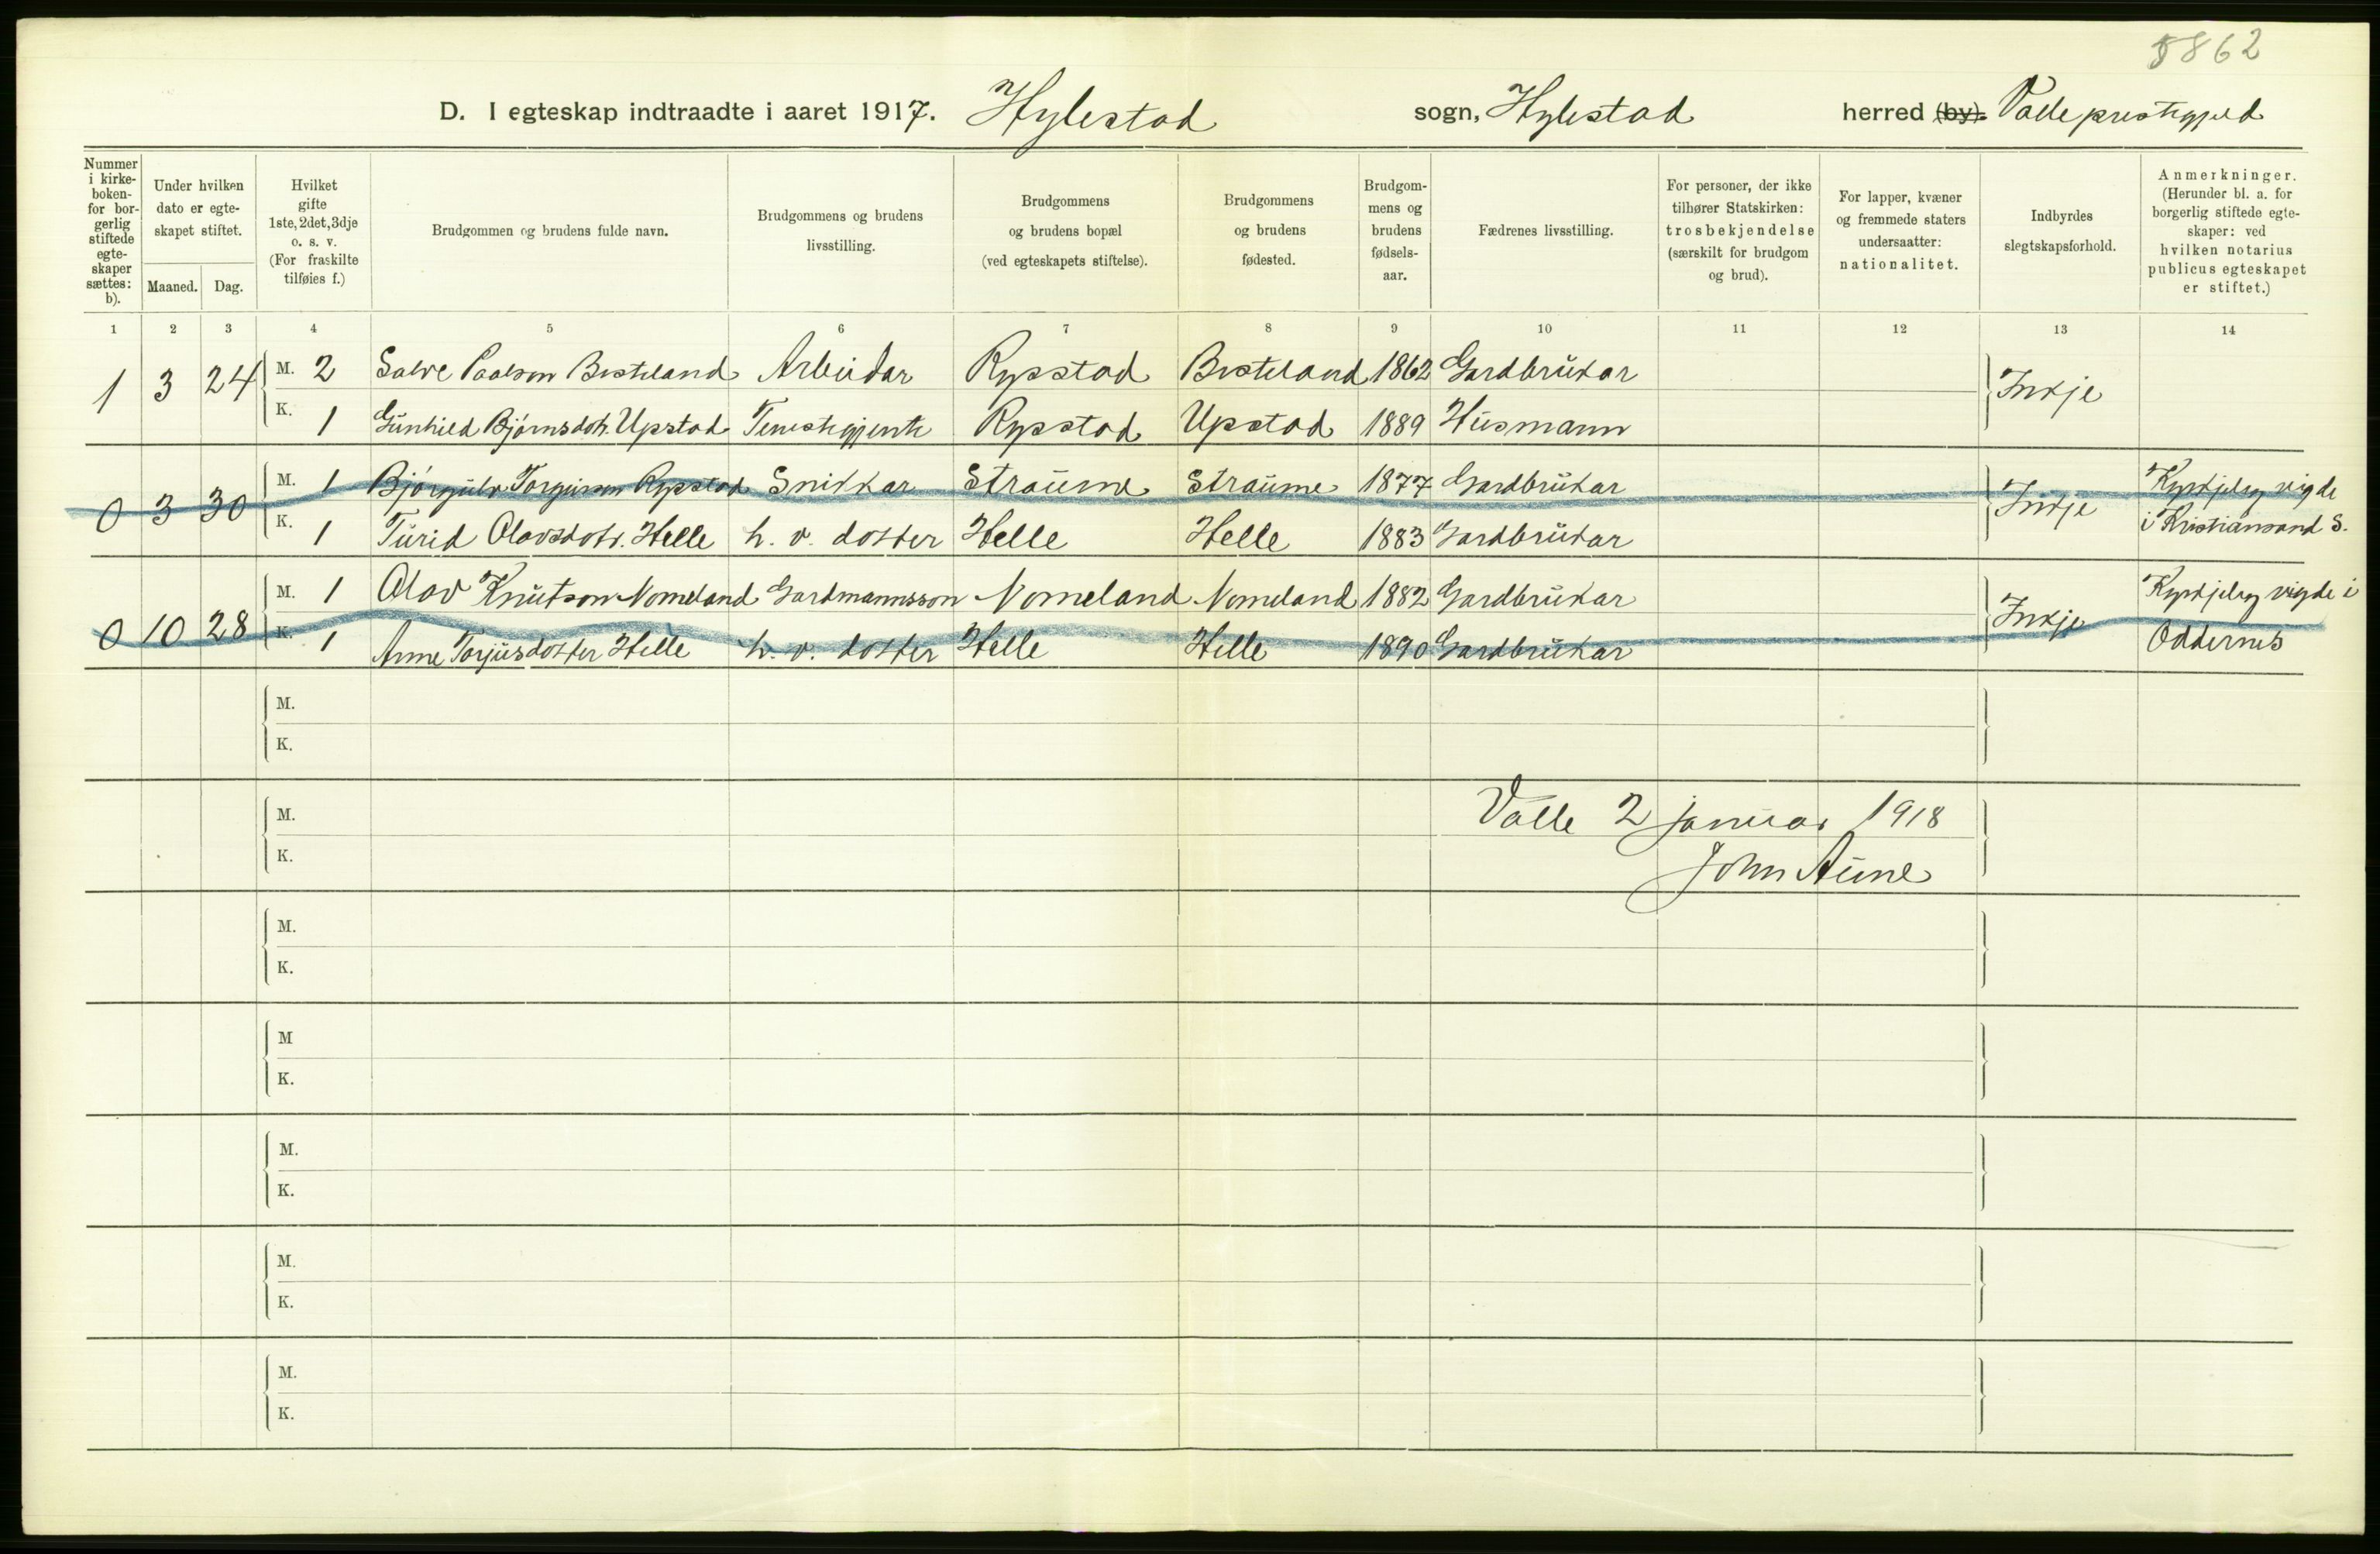 5862
D. I egteskap indtraadte i aaret 1917. Hylestad sogn, Hylestad herred (by). Valle prestegjeld
Nummer i kirkeboken- for borgerlig stiftede egteskaper sættes: b).
Under hvilken dato er egteskapet stiftet.
Maaned. Dag.
Hvilket gifte 1ste, 2det, 3dje o. s. v. (For fraskilte tilføies f.)
Brudgommen og brudens fulde navn.
Brudgommens og brudens livsstilling.
Brudgommens og brudens bopæl (ved egteskapets stiftelse).
Brudgommens og brudens fødested.
Brudgommens og brudens fødselsaar.
Fædrenes livsstilling.
For personer, der ikke tilhører Statskirken: trosbekjendelse (særskilt for brudgom og brud).
For lapper, kvæner og fremmede staters undersaatter: nationalitet.
Indbyrdes slegtskapsforhold.
Anmerkninger. (Herunder bl. a. for borgerlig stiftede egteskaper: ved hvilken notarius publicus egteskapet er stiftet.)
1 2 3 4 5 6 7 8 9 10 11 12 13 14
1 3 24 M. 2 Salve Paalson Besteland Arbeidar Rysstad Besteland 1862 Gardbrukar Inkje
K. 1 Gunhild Bjørnsdotr. Upstad Tenestegjente Rysstad Upstad 1889 Husmann
0 3 30 M. 1 Bjørgulv Torgeirson Rysstad Snikkar Straume Straume 1877 Gardbrukar Inkje Kyrkjeleg vigde
K. 1 Turid Olavsdotr. Helle h. v. dotter Helle Helle 1883 Gardbrukar i Kristiansand S.
0 10 28 M. 1 Olav Knutson Nomeland Gardmannsson Nomeland Nomeland 1882 Gardbrukar Inkje Kyrkjeleg vigde i
K. 1 Anne Torjusdotter Helle h. v. dotter Helle Helle 1890 Gardbrukar Oddernes
M.
K.
M.
K.
Valle 2 januar 1918
John Aune
M.
K.
M
K.
M.
K.
M.
K.
M.
K.